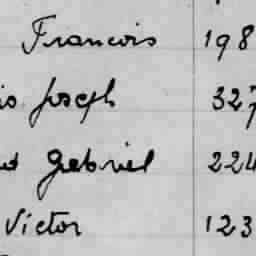 Francois 198
Joseph 327
Gabriel 224
Victor 123